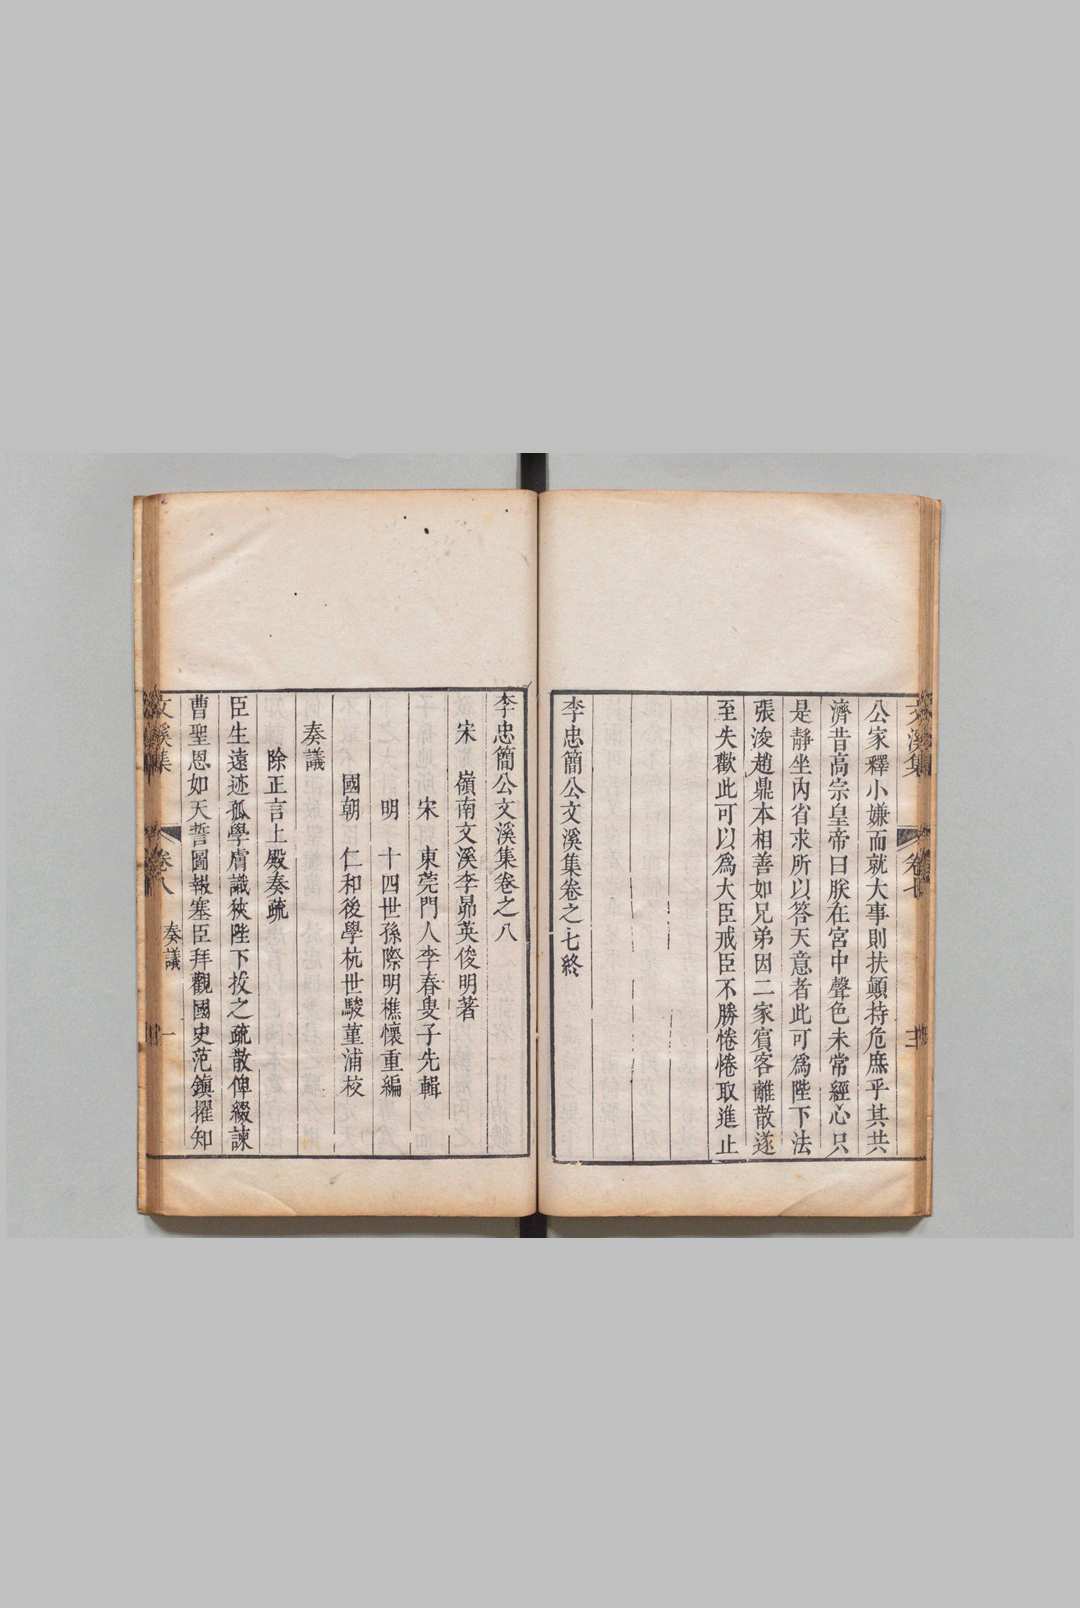 公家釋小嫌而就大事則扶顛持危庶乎其共
濟昔高宗皇帝曰朕在宮中聲色未常經心只
是靜坐內省求所以答天意者此可為陛下法
張浚趙鼎本相善如兄弟因二家賓客離散遂
至失歡此可以為大臣戒臣不勝惓惓取進止
李忠簡公文溪集卷之七終
文溪集
卷七
李忠簡公文溪集卷之八
宋 嶺南文溪李昴英俊明著
宋 東莞門人李春叟子先輯
明 十四世孫際明樵懷重編
國朝 仁和後學杭世駿菫浦校
奏議
除正言上殿奏疏
臣生遠迹孤學膚識狹陛下拔之疏散俾綴諫
曹聖恩如天誓圖報塞臣拜觀國史范鎮擢知
文溪集
卷八
奏議
一